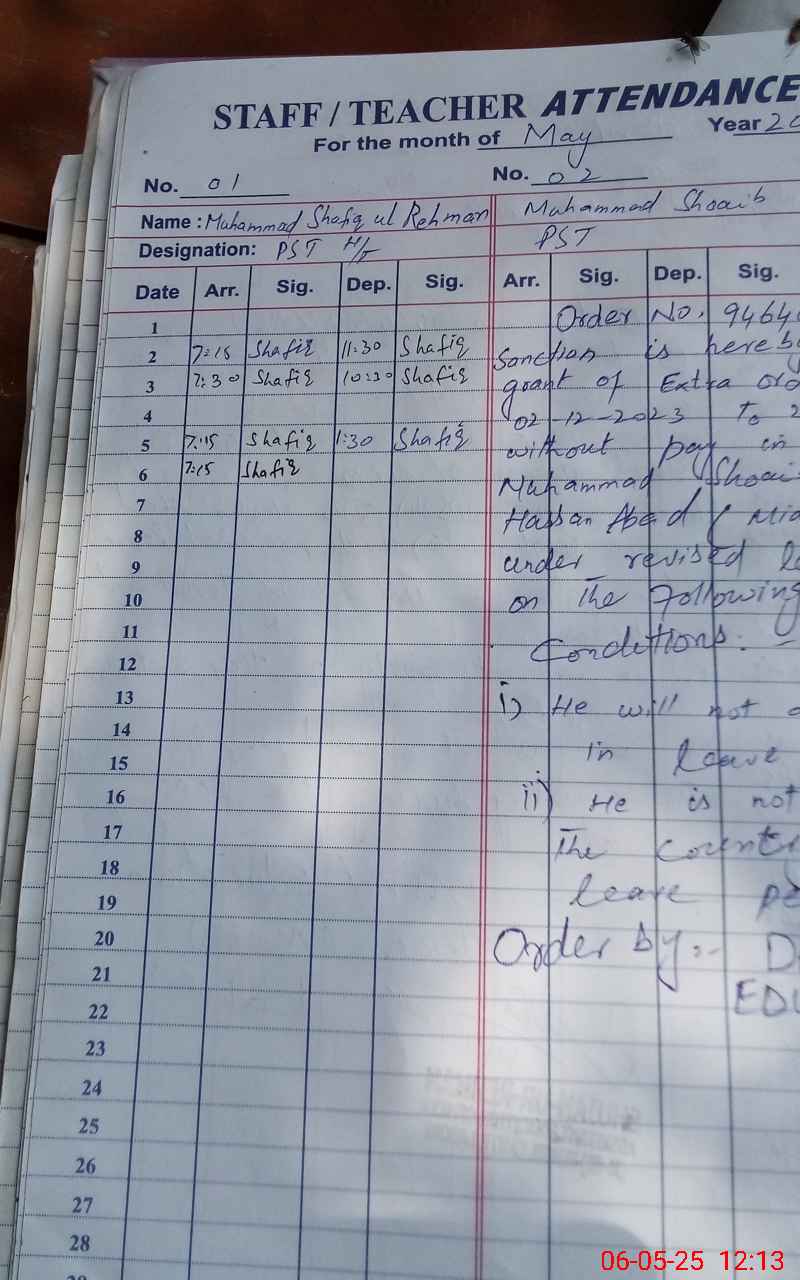 STAFF / TEACHER ATTENDANCE
For the month of May Year 20
No. 01 No. 02
Name : Muhammad Shafiq ul Rehman Muhammad Shoaib
Designation: PST H/T PST
Date Arr. Sig. Dep. Sig. Arr. Sig. Dep. Sig.
1 Order No. 9464
2 7:15 Shafiq 11:30 Shafiq Sanction is hereb
3 7:30 Shafiq 10:30 Shafiq grant of Extra ord
4 02-12-2023 To 2
5 7:15 Shafiq 1:30 Shafiq without pay in
6 7:15 Shafiq Muhammad Shoai
7 Hassan Abad (Mia
8 under revised le
9 on The Following
10 Conditions:
11
12
13 i) He will not
14 in leave
15
16 ii) He is not
17 The countr
18 leave pe
19
20 Order by:- D
21 EDU
22
23
24
25
26
27
28
06-05-25 12:13